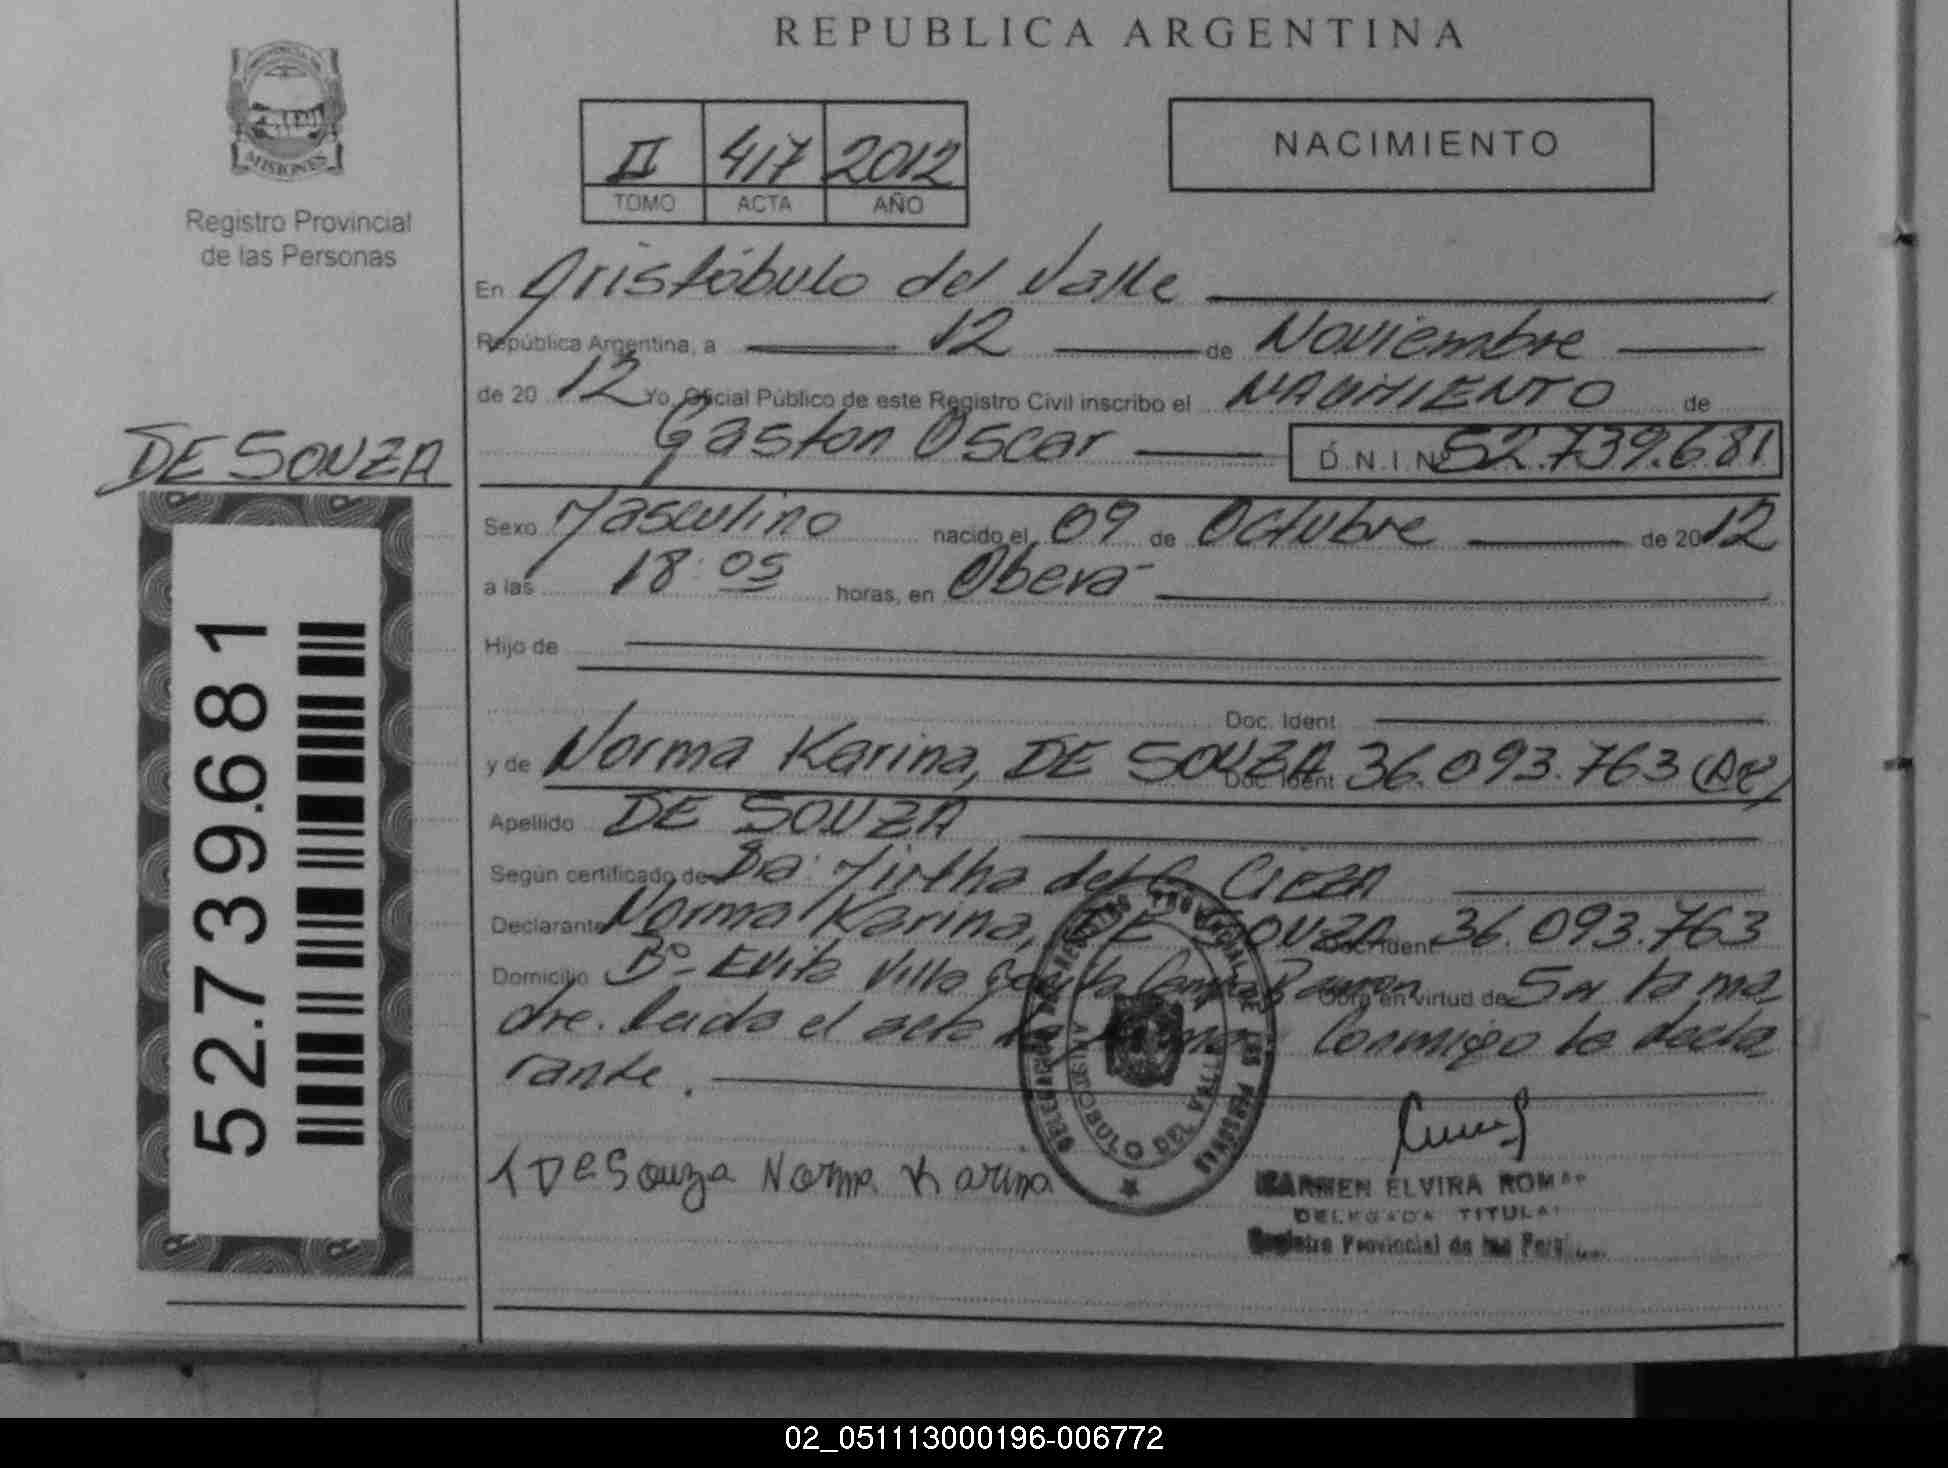 REPUBLICA ARGENTINA
MISIONES
Registro Provincial
de las Personas
II 417 2012
TOMO ACTA AÑO
NACIMIENTO
En Aristóbulo del Valle
República Argentina, a 12 de Noviembre
de 20 12 Yo, Oficial Público de este Registro Civil inscribo el NACIMIENTO de
Gaston Oscar D.N.I Nº 52.739.681
DE SOUZA
52.739.681
Sexo Masculino nacido el 09 de Octubre de 2012
a las 18:05 horas, en Oberá
Hijo de
Doc. Ident
y de Norma Karina, DE SOUZA Doc. Ident 36.093.763
Apellido DE SOUZA
Según certificado de Mirtha del C. CIEZA
Declarante Norma Karina, DE SOUZA Doc. Ident 36.093.763
Domicilio Bº Evita Villa Ramon Obra en virtud de Ser la ma
dre. Leida el acta la conmigo la decla
rante.
DELEGACION DEL REGISTRO PROVINCIAL DE LAS PERSONAS
ARISTOBULO DEL VALLE
De Souza Norma Karina
CARMEN ELVIRA ROMAN
DELEGADA TITULAR
Registro Provincial de las
02_051113000196-006772